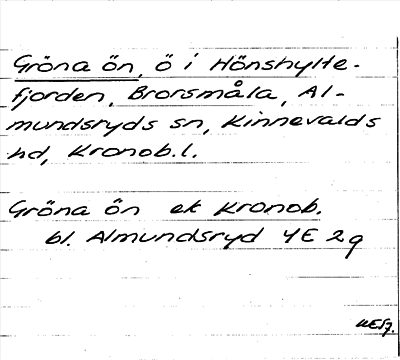 Gröna ön, ö i Hönshylte-
fjorden, Brorsmåla, Al-
mundsryds sn, Kinnevalds
hd, Kronob.l.
Gröna ön ek Kronob.
bl. Almundsryd 4E 2g